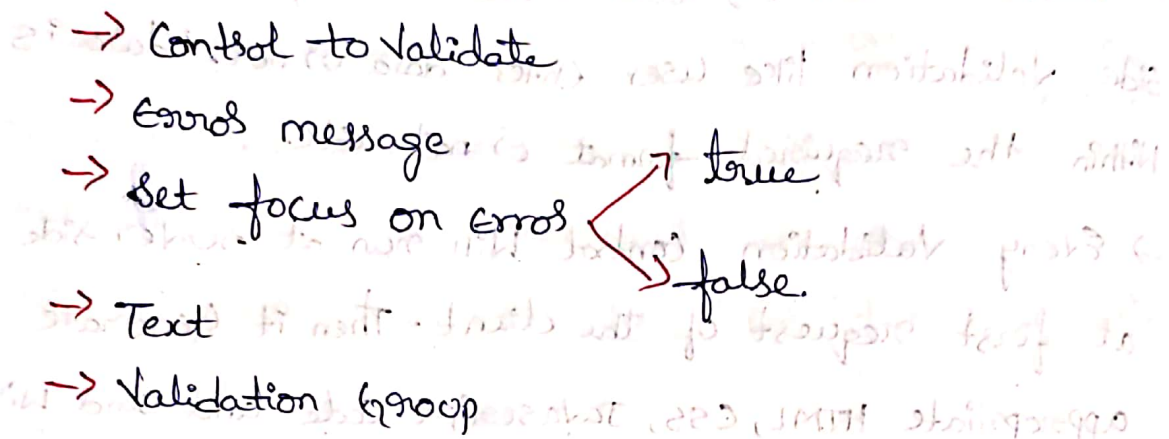 → Control to Validate
→ Error message.
→ Set focus on Error → true.
→ false.
→ Text
→ Validation Group